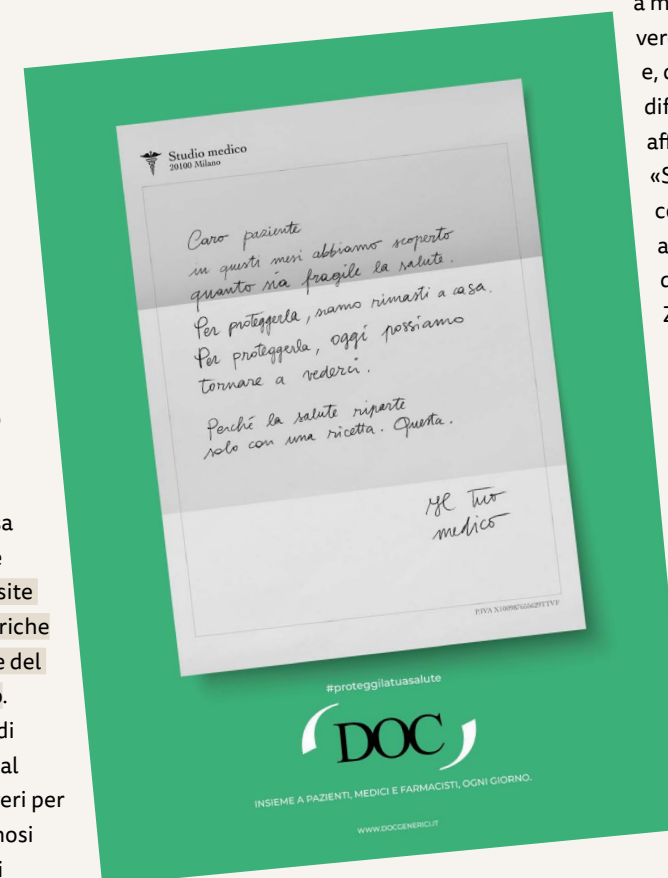 a m
ver
e, c
dif
aff
«S
co
a
c
Z
Studio medico
20100 Milano
Caro paziente
in questi mesi abbiamo scoperto
quanto sia fragile la salute.
Per proteggerla, siamo rimasti a casa.
Per proteggerla, oggi possiamo
tornare a vederci.
Perché la salute riparte
solo con una ricetta. Questa.
Il tuo
medico
P.IVA
#proteggilatuasalute
DOC
INSIEME A PAZIENTI, MEDICI E FARMACISTI, OGNI GIORNO.
WWW.DOCGENERICI.IT
sa
e
site
riche
e del
o.
di
al
eri per
nosi
i